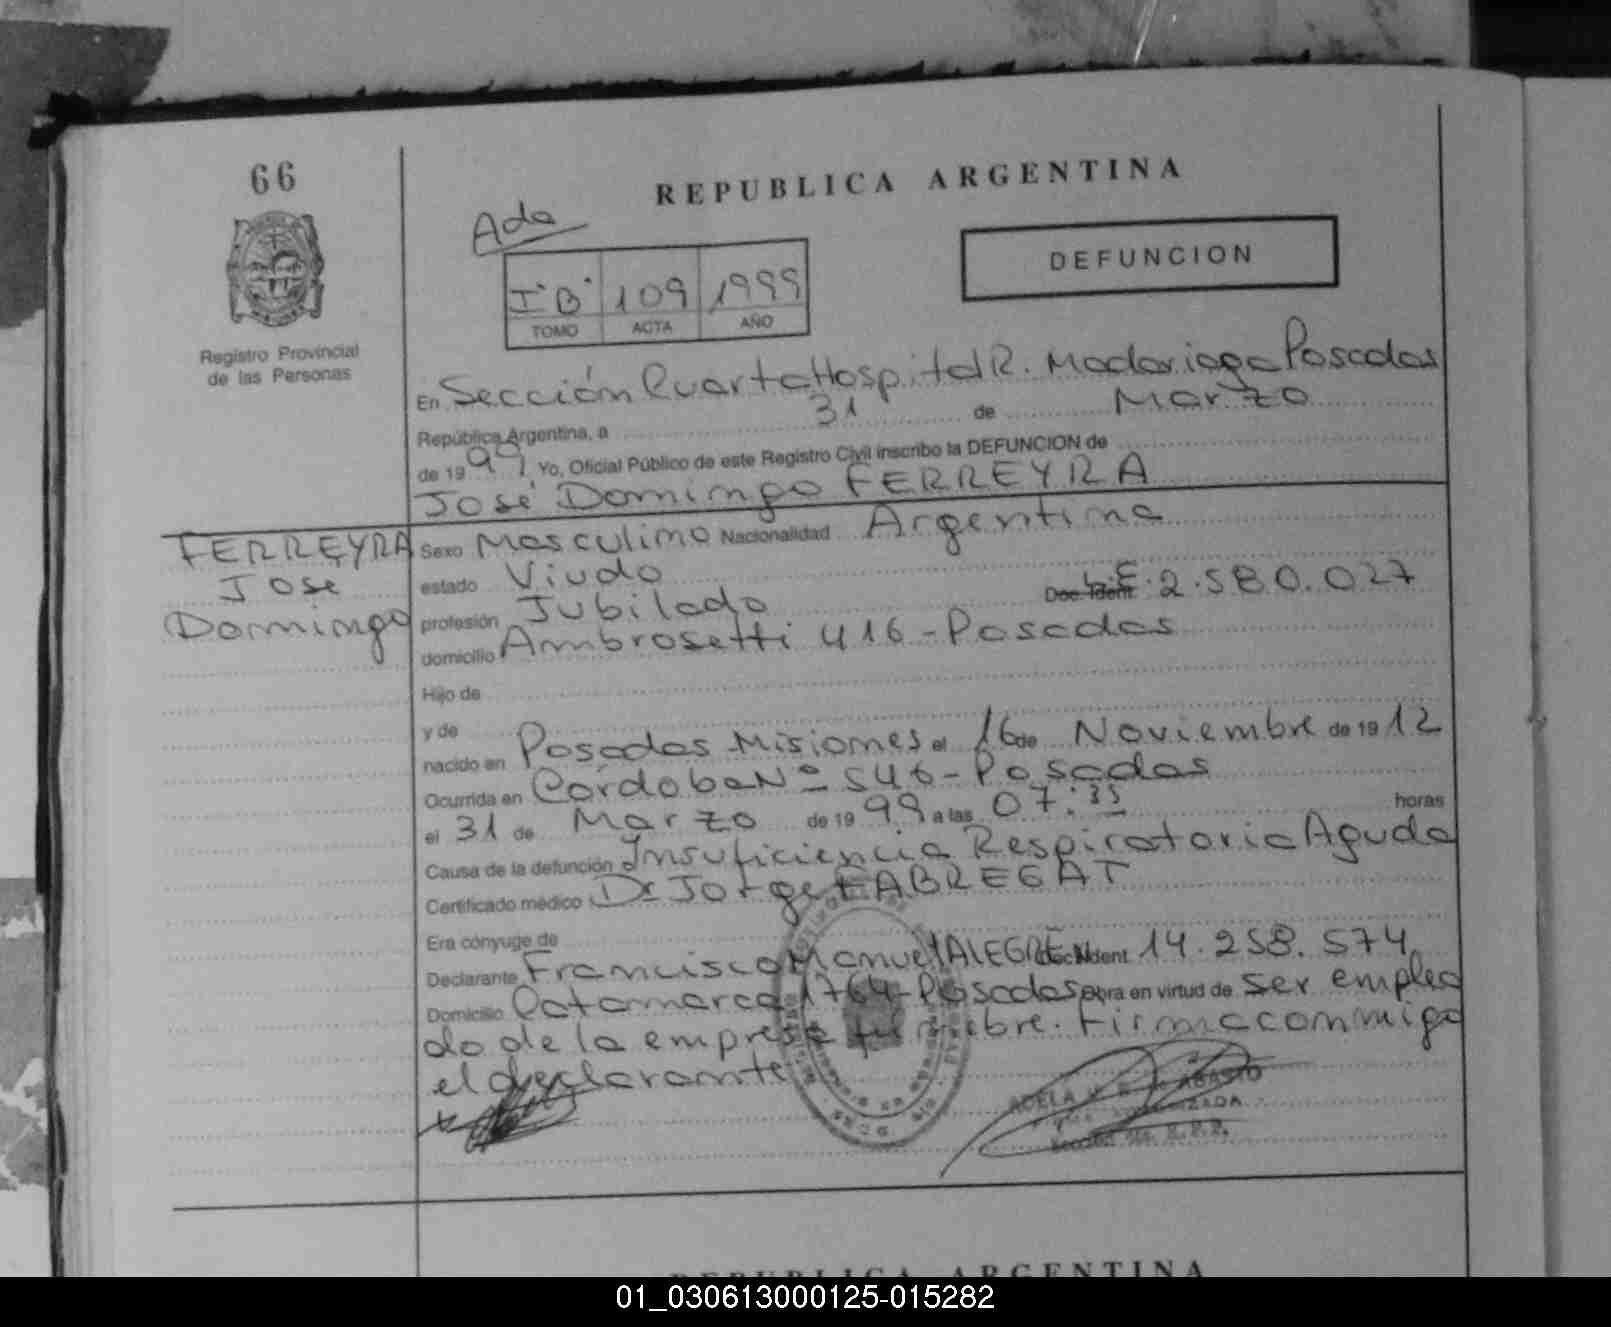 66
REPUBLICA ARGENTINA
Ada
DEFUNCION
I°B° 109 1999
TOMO ACTA AÑO
Registro Provincial
de las Personas
En Sección Cuarta Hospital R. Madariaga Posadas
República Argentina, a 31 de Marzo
de 1999, Yo, Oficial Público de este Registro Civil inscribo la DEFUNCION de
José Domingo FERREYRA
FERREYRA
José
Domingo
Sexo Masculino Nacionalidad Argentina
estado Viudo
profesión Jubilado Doc. Ident. L.E. 2.580.027
domicilio Ambrosetti 416 - Posadas
Hijo de
y de
nacido en Posadas Misiones el 16 de Noviembre de 1912
Ocurrida en Córdoba Nº 546 - Posadas
el 31 de Marzo de 1999 a las 07:35 horas
Causa de la defunción Insuficiencia Respiratoria Aguda
Certificado médico Dr Jorge FABREGAT
Era cónyuge de
Declarante Francisco Manuel ALEGRE Doc. Ident. 14.258.574
Domicilio Catamarca 1764 - Posadas obra en virtud de ser emplea
do de la empresa fúnebre. Firma conmigo
el declarante
ADELA
REPUBLICA ARGENTINA
01_030613000125-015282